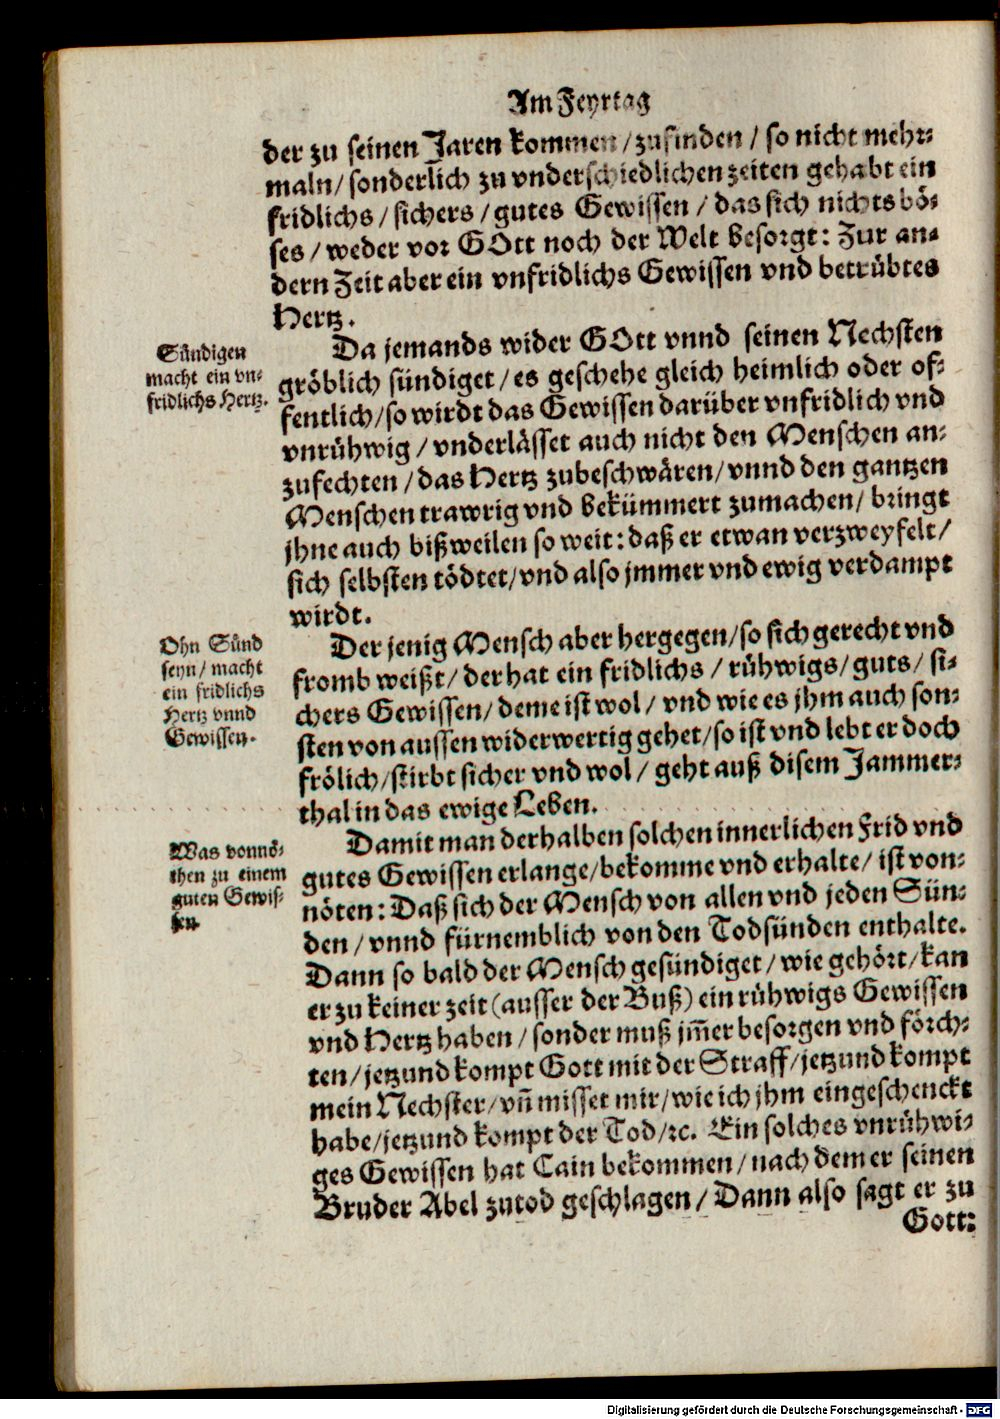 Am Feyrtag
der zu seinen Jaren kommen/zufinden/so nicht mehr⸗
maln/sonderlich zu vnderschiedlichen zeiten gehabt ein
fridlichs/sichers/gutes Gewissen/das sich nichts bö⸗
ses/weder vor GOtt noch der Welt besorgt: Zur an⸗
dern Zeit aber ein vnfridlichs Gewissen vnd betrübtes
Hertz.
Sündigen
macht ein vn⸗
fridlichs Hertz.
Da jemands wider GOtt vnnd seinen Nechsten
gröblich sündiget/es geschehe gleich heimlich oder of⸗
fentlich/so wirdt das Gewissen darüber vnfridlich vnd
vnrühwig/vnderlässet auch nicht den Menschen an⸗
zufechten/das Hertz zubeschwären/vnnd den gantzen
Menschen trawrig vnd bekümmert zumachen/bringt
jhne auch bißweilen so weit: daß er etwan verzweyfelt/
sich selbsten tödtet/vnd also jmmer vnd ewig verdampt
wirdt.
Ohn Sünd
seyn/macht
ein fridlichs
Hertz vnnd
Gewissen.
Der jenig Mensch aber hergegen/so sich gerecht vnd
fromb weißt/der hat ein fridlichs/rühwigs/guts/si⸗
chers Gewissen/deme ist wol/vnd wie es jhm auch son⸗
sten von aussen widerwertig gehet/so ist vnd lebt er doch
frölich/stirbt sicher vnd wol/geht auß disem Jammer⸗
thal in das ewige Leben.
Was vonnö⸗
then zu einem
guten Gewis⸗
sen.
Damit man derhalben solchen innerlichen Frid vnd
gutes Gewissen erlange/bekomme vnd erhalte/ist von⸗
nöten: Daß sich der Mensch von allen vnd jeden Sün⸗
den/vnnd fürnemblich von den Todsünden enthalte.
Dann so bald der Mensch gesündiget/wie gehört/kan
er zu keiner zeit (ausser der Buß) ein rühwigs Gewissen
vnd Hertz haben/sonder muß jm̃er besorgen vnd förch⸗
ten/jetzund kompt Gott mit der Straff/jetzund kompt
mein Nechster/vñ misset mir/wie ich jhm eingeschenckt
habe/jetzund kompt der Tod/ꝛc. Ein solches vnrühwi⸗
ges Gewissen hat Cain bekommen/nach dem er seinen
Bruder Abel zutod geschlagen/Dann also sagt er zu
Gott:
Digitalisierung gefördert durch die Deutsche Forschungsgemeinschaft - DFG